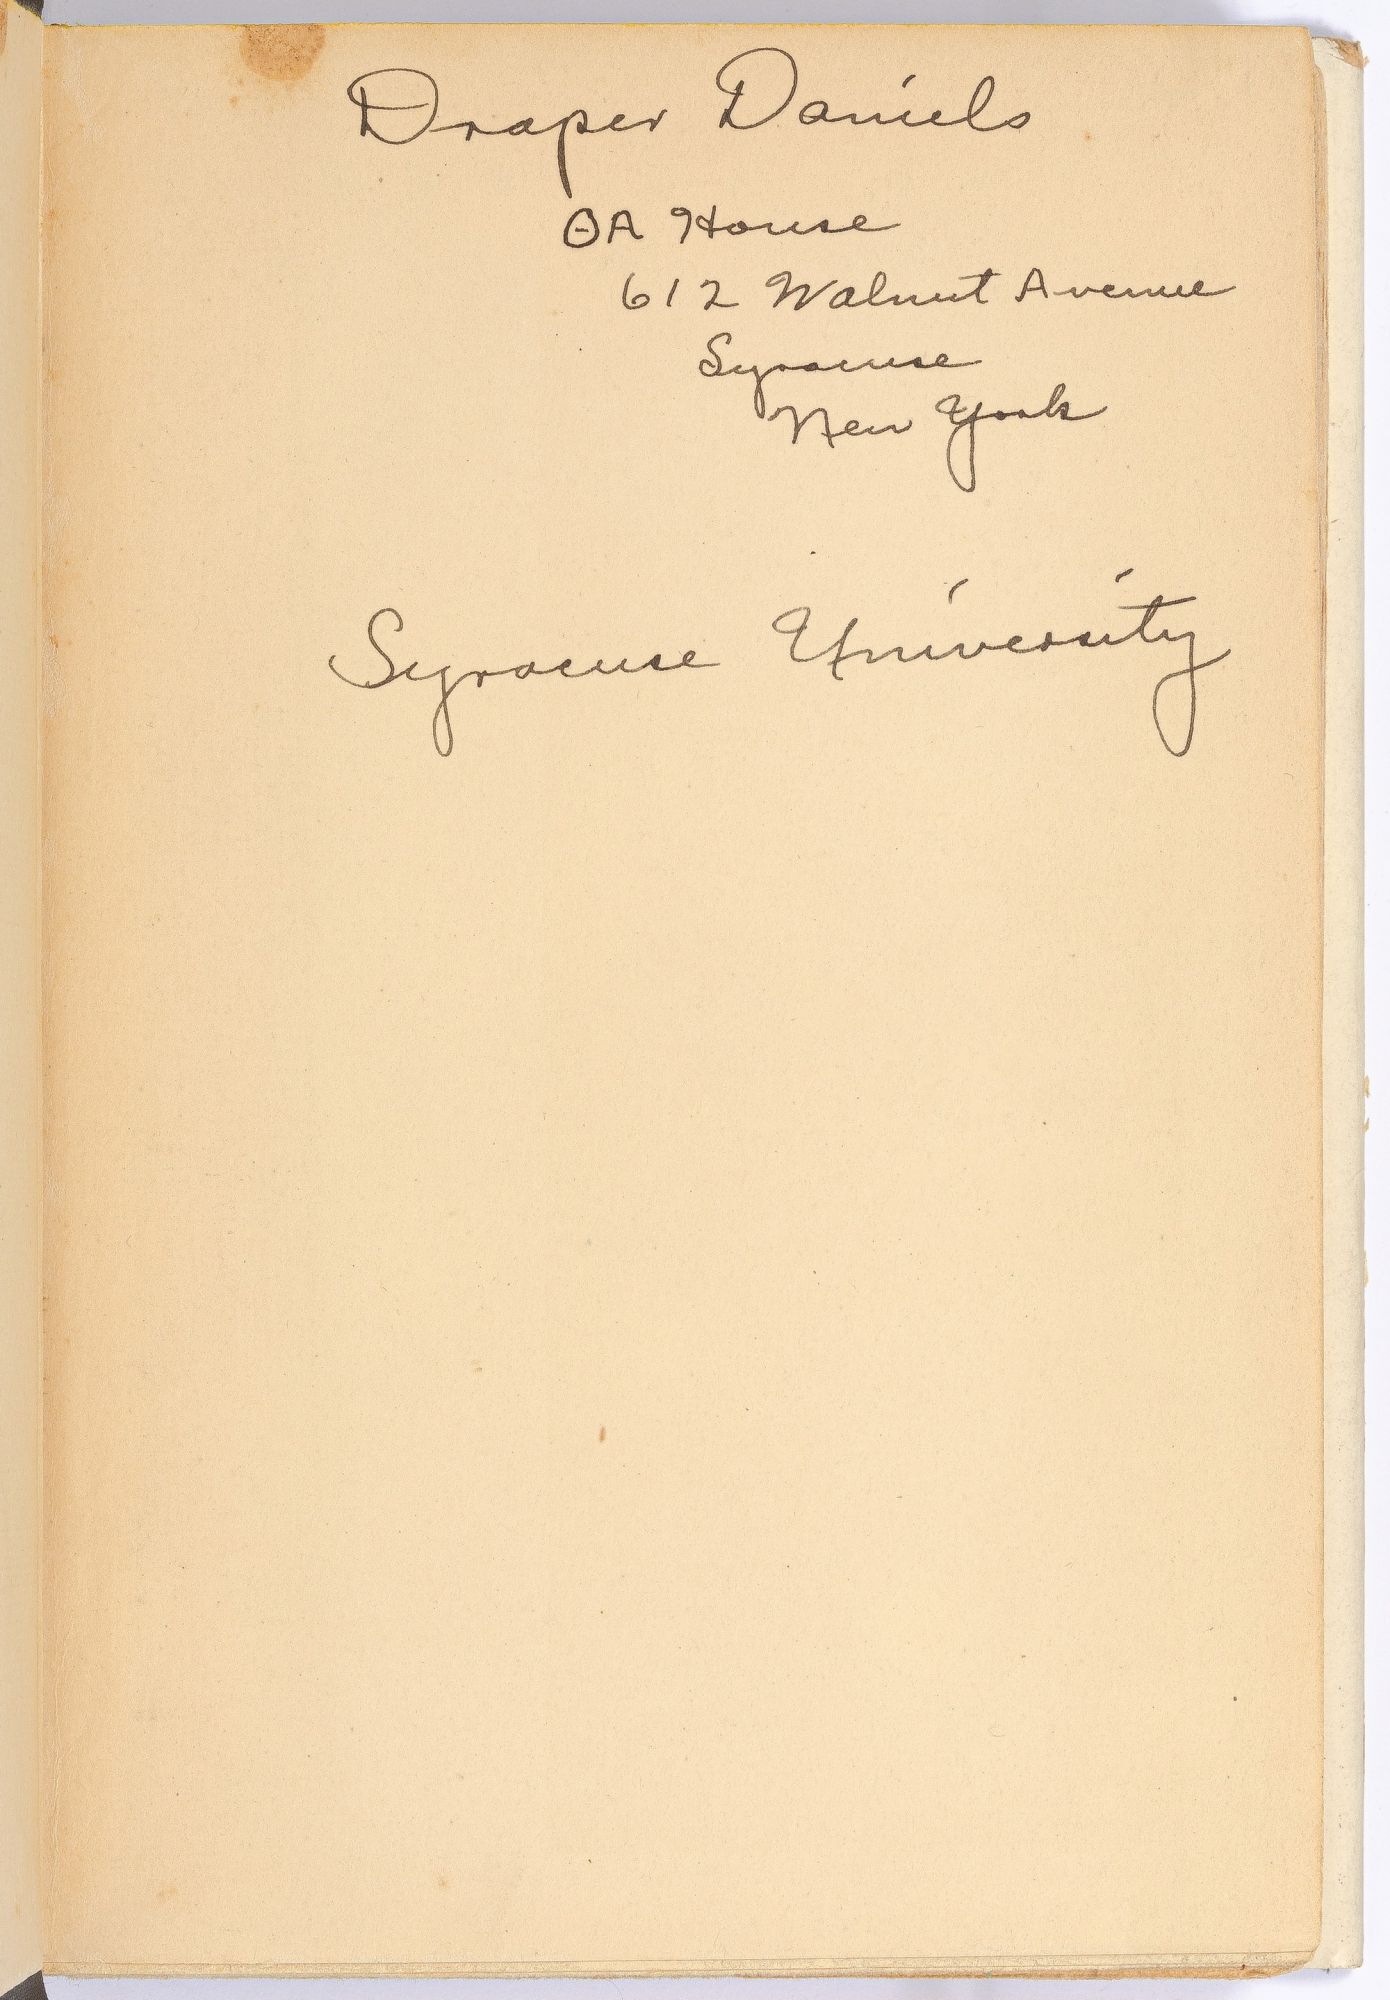 Draper Daniels
ΘA House
612 Walnut Avenue
Syracuse
New York
Syracuse University